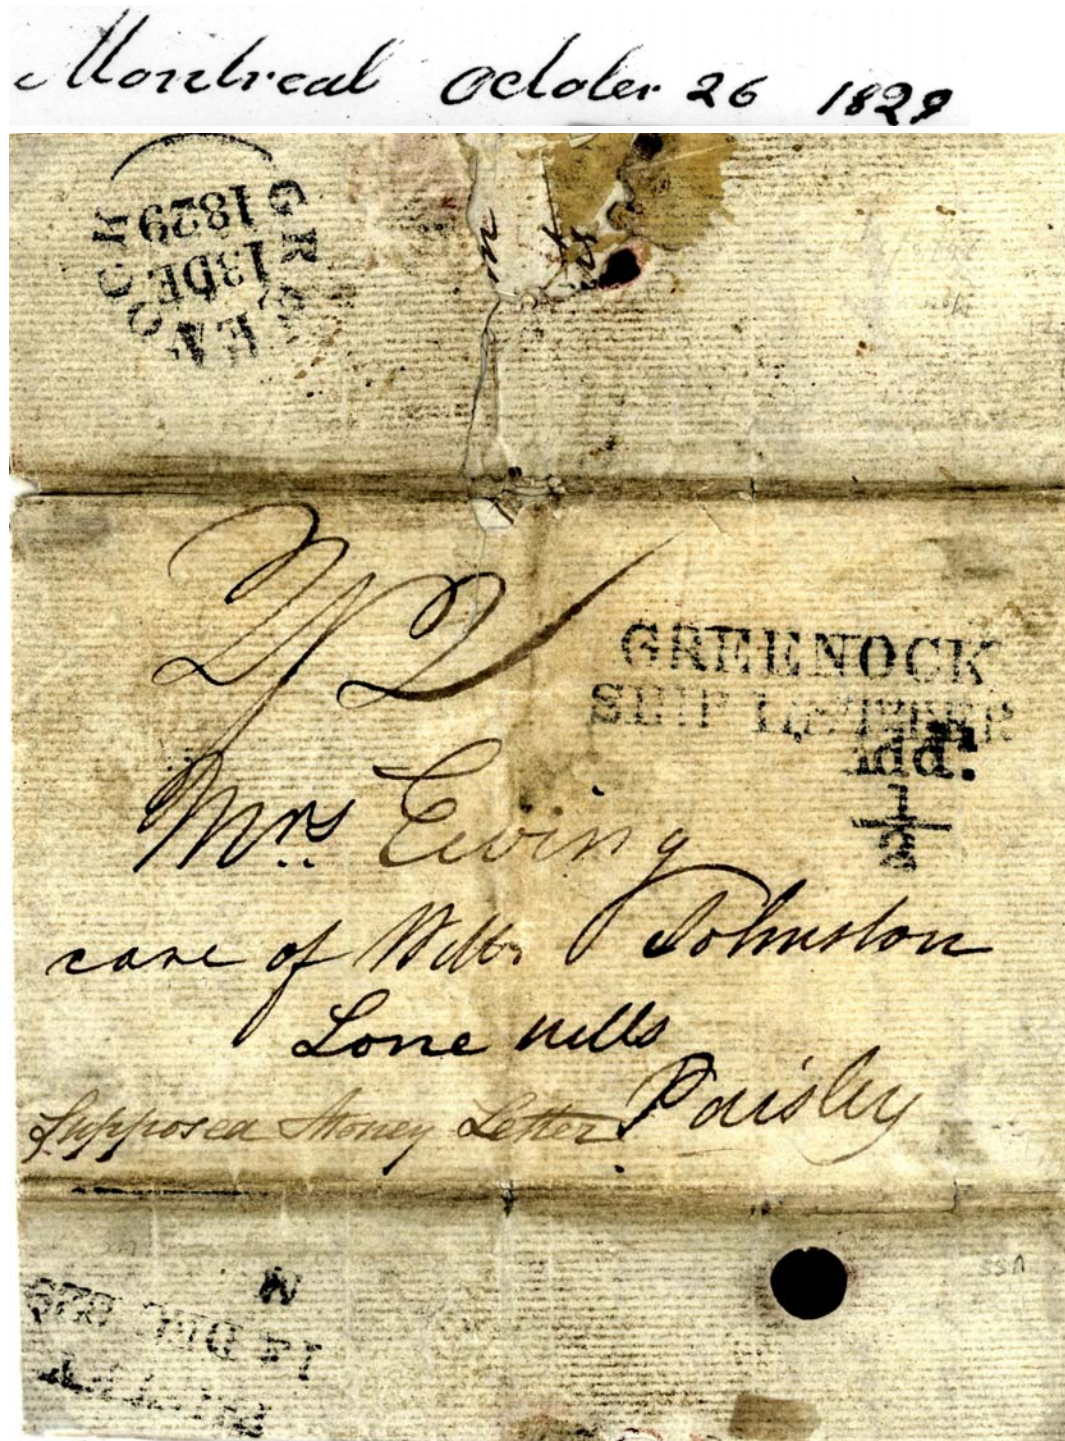 Montreal October 26 1829
GREENOCK
13DE
1829
GREENOCK
SHIP LETTER
Add.
½
Mrs Ewing
care of Willm Johnston
Lone mills
Paisley
Supposed Money Letter
M
14 DEC 829